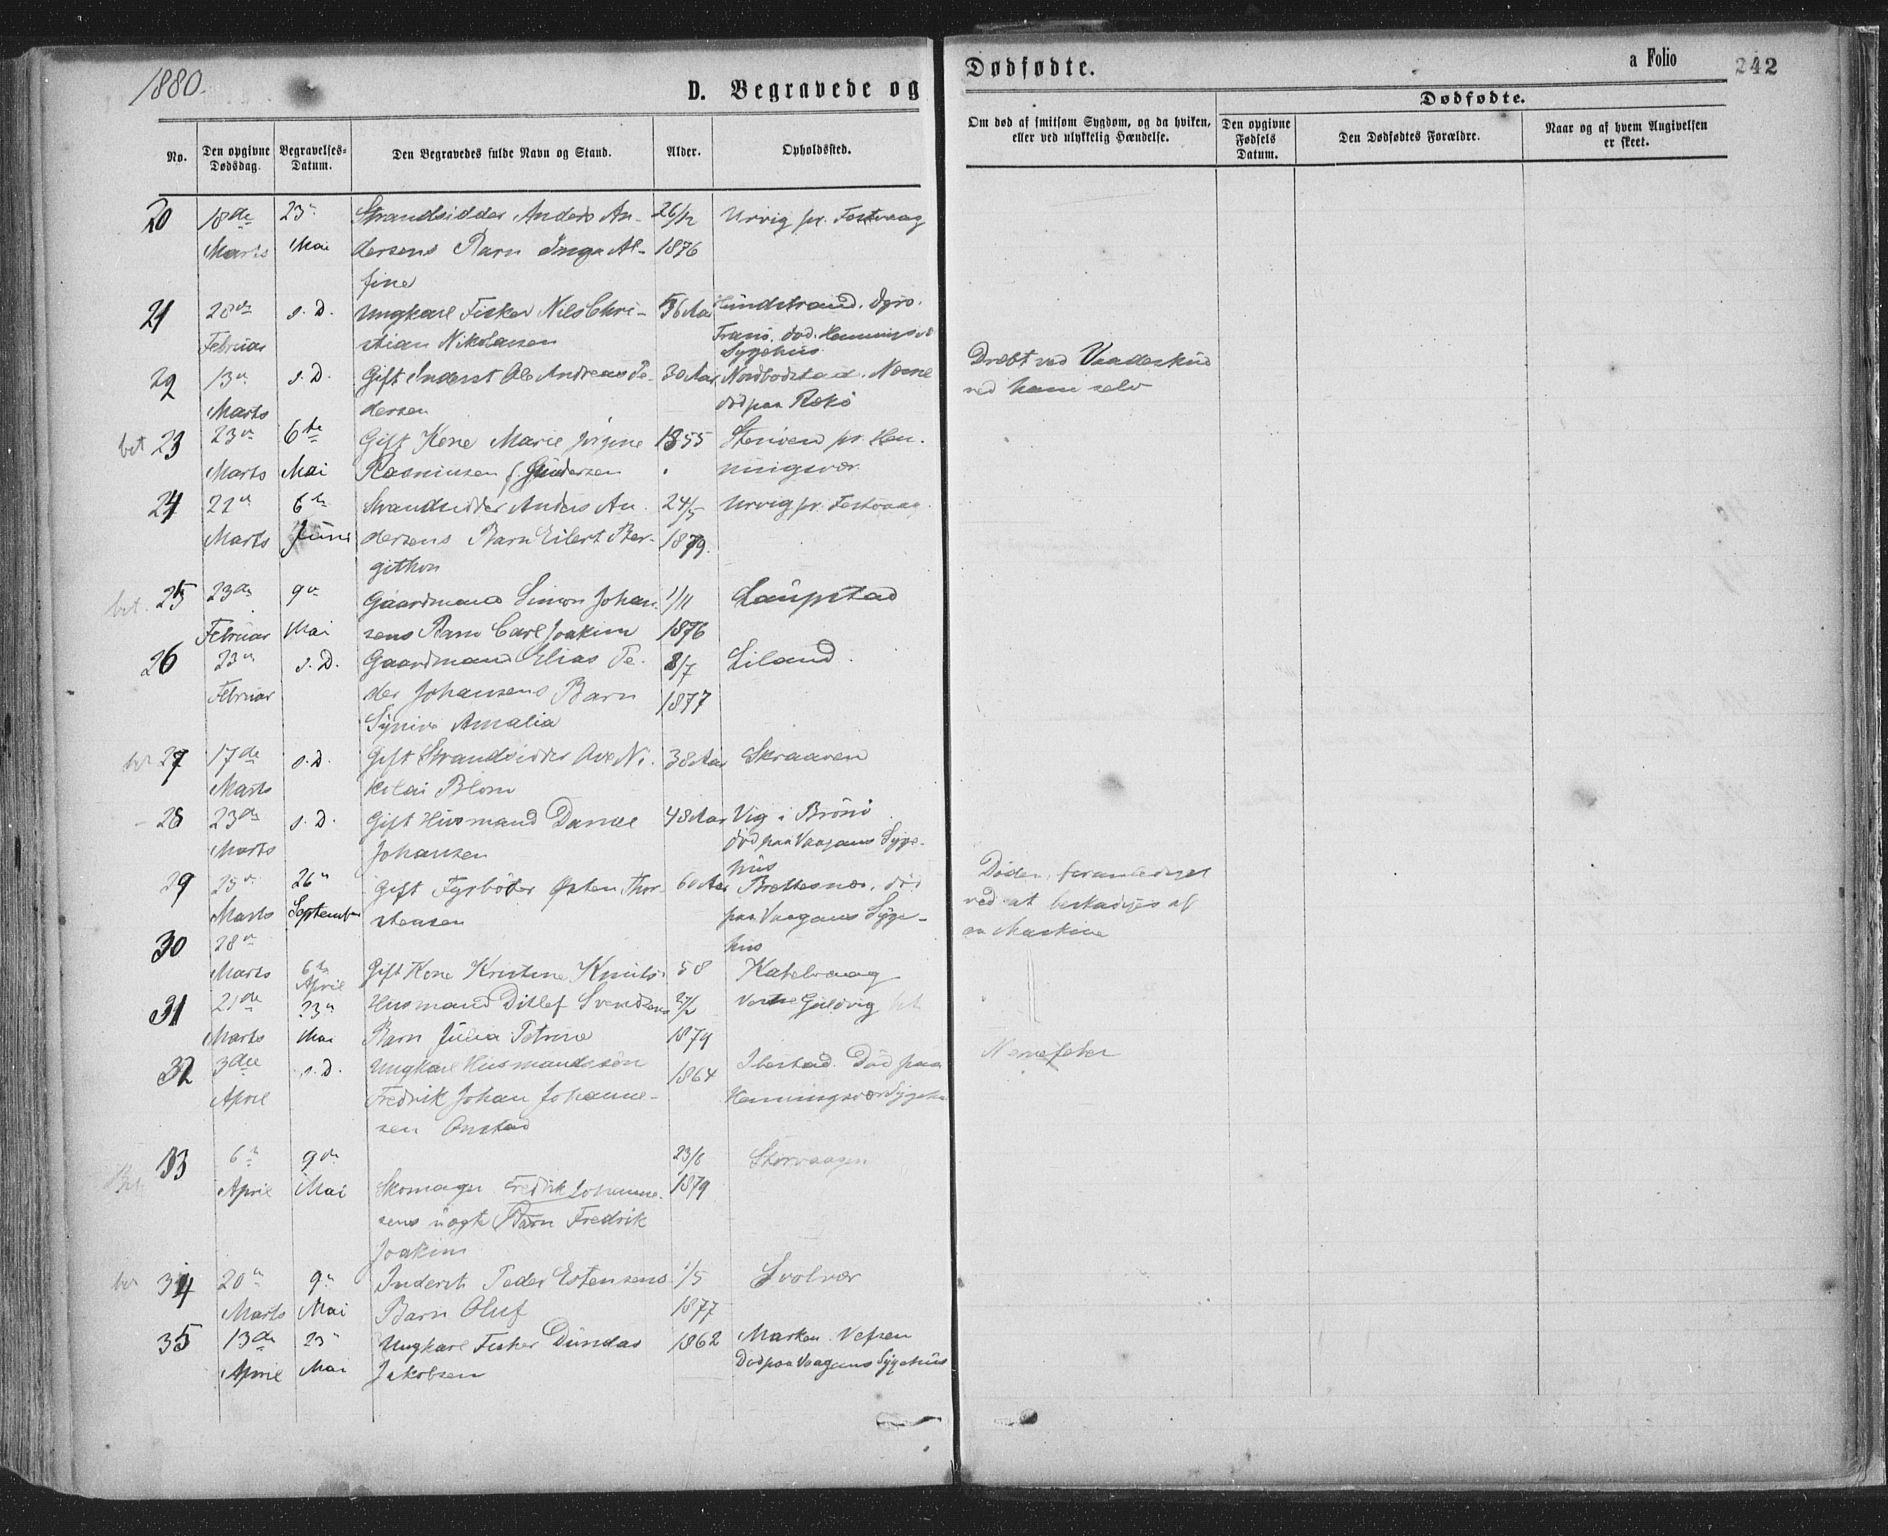 1880.
D. Begravede og
Dødfødte.
a Folio
242
No.
Den opgivne Dødsdag.
Begravelses-Datum.
Den Begravedes fulde Navn og Stand.
Alder.
Opholdssted.
Om død af smitsom Sygdom, og da hvilken, eller ved ulykkelig Hændelse.
Dødfødte.
Den opgivne Fødsels Datum.
Den Dødfødtes Forældre.
Naar og af hvem Angivelsen er skeet.
20 18de 23de Strandsidder Anders An- 26/12 Urvig pr. Festvaag
Marts Mai dersens Barn Inga Al- 1876
fine
21 28de s. D. Ungkarl Fisker Nils Chri- 36 Aar
Februar stian Nikolaisen Tranø. død Henningsv
Sygehus
22 13de s. D. Gift Inderst Ole Andreas Pe- 30 Aar Nordbostad. Næsne Dræbt ved Vaadeskud
Marts dersen død paa Rækø ved ham selv
bet 23 23de 6te Gift Kone Marie Jørgine 1855 Stenøen pr. Hen-
Marts Mai Rasmusen f. Gundersen ningsvær
24 22de 6te Strandsidder Anders An- 24/5 Urvig pr. Festvaag.
Marts Juni dersens Barn Eilert Ber- 1879.
githon
bet. 25 23de 9de Gaardmand Simon Johan- 1/11 Laupstad
Februar Mai sens Barn Carl Joakim 1876
26 23de s. D. Gaardmand Elias Pe- 8/7 Liland.
Februar der Johansens Barn 1877
Synive Amalia
bet 27 17de s. D. Gift Strandsidder Ove Ni- 38 Aar Skraaven
Marts kolai Blom
28 23de s. D. Gift Husmand Daniel 48 Aar Vig i Brønø
Marts Johansen død paa Vaagans Syge-
hus
29 25de 26de Gift Fyrbøter Østen Thor- 60 Aar Brettesnæs, død Døden foranlediget
Marts September stensen paa Vaagans Syge- ved at beskadiges af
hus en Maskine
30 28de
Marts 6te April Gift Kone Kristine Knuts- 58 Kabelvaag
31 21de 23de Husmand Ditlef Svendsens 27/2 Vestre Guldvig bet
Marts Mai Barn Julia Petrine 1879
32 3die s. D. Ungkarl Husmandssøn 1864 Ibestad. Død paa Nervefeber
April Fredrik Johan Johanne- Henningsvær Sygehus
sen Anstad
Bet. 33 6te 9de 23/8 Storvaagen
April Mai Skomager Fredrik Johanne- 1879
sens uægte Barn Fredrik
Joakim
bet 34 20de 9de Inderst Peder Estensens 1/5 Svolvær
Marts Mai Barn Oluf 1877
35 13de 23de Ungkarl Fisker Dundas 1862 Marken. Vefsen
April Mai Jakobsen Død paa Vaagans Sygehus